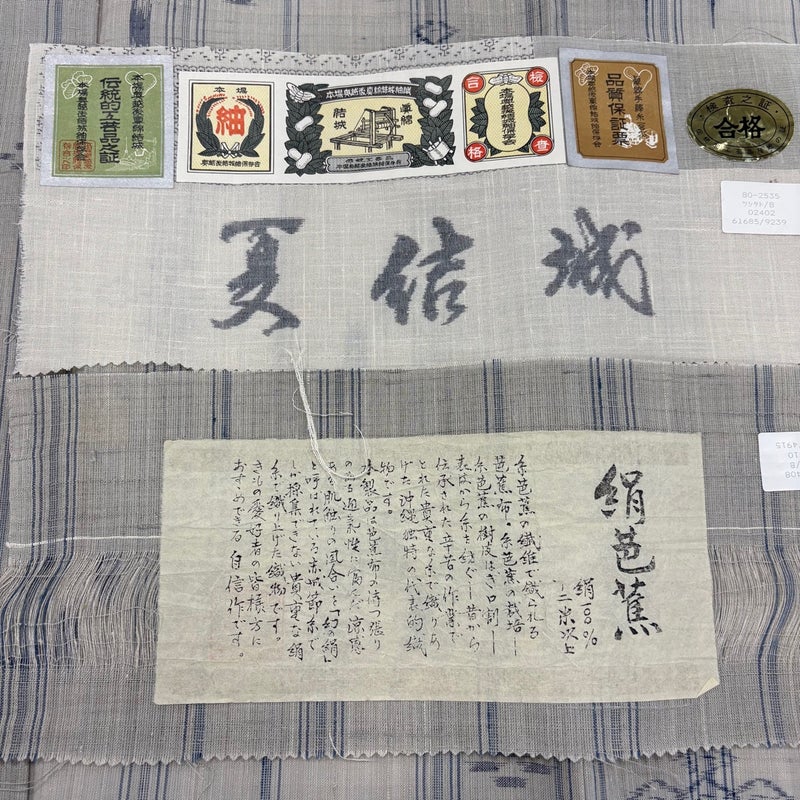 伝統的工芸品之証
本場
紬
結城
検査
合格
品質保証票
検査之証
合格
80-2535
02402
61685/9239
夏結城
絹芭蕉
絹100%
十二米以上
糸芭蕉の繊維で織られる
芭蕉布。糸芭蕉の栽培―
糸芭蕉の樹皮はぎ口割―
表皮から糸を紡ぐ―昔から
伝承された辛苦の作業で
とれた貴重な糸で織りあ
げた沖縄独特の代表的織
物です。
本製品は芭蕉布の持つ張り
の有る通気性に富んだ涼感
ある肌触りの風合いを「幻の絹」
と呼ばれている赤城節糸で
しか採集できない貴重な絹
糸で織り上げた織物です。
きもの愛好者の皆様方に
おすすめできる自信作です。